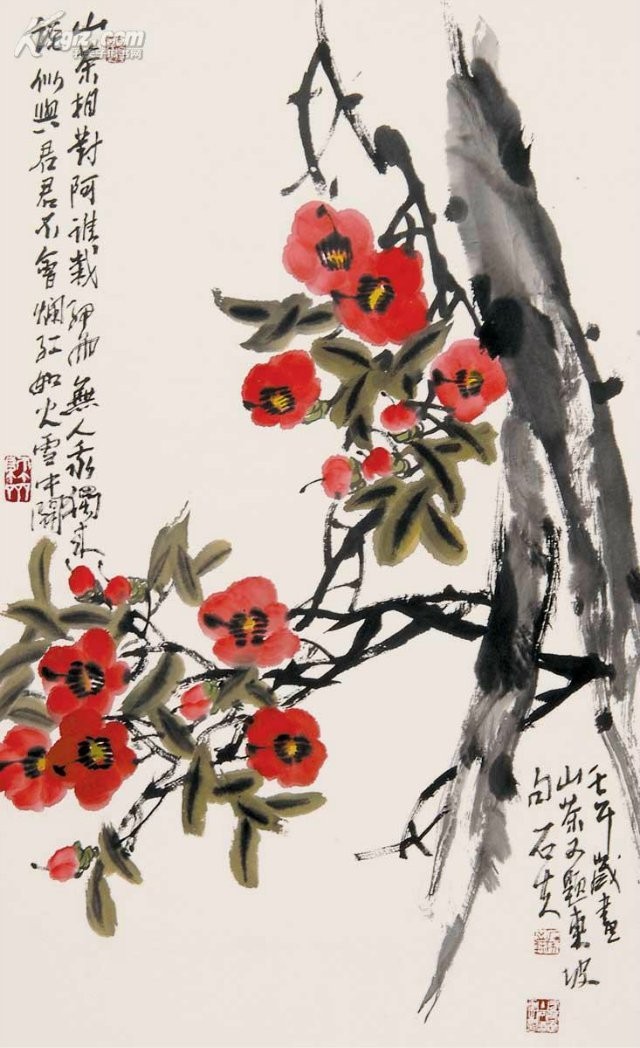 山茶相對阿誰栽細雨無人我獨來
說似與君君不會爛紅如火雪中開
壬午歲畫
山茶又題東坡
句石夫